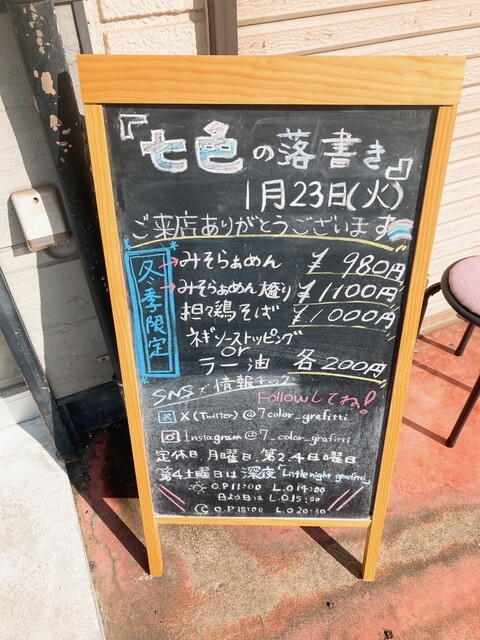 『七色の落書き』
1月23日(火)
ご来店ありがとうございます
冬季限定
みそらぁめん ¥980円
みそらぁめん 大盛り ¥1100円
担々鶏そば ¥1000円
ネギソーストッピング
or
ラー油 各200円
SNSで情報チェック
Followしてね!
X(Twitter) @7color_grafitti
Instagram@7_color_grafitti
定休日、月曜日、第2.4日曜日
第4土曜日は深夜「Little night grafitti」
O.P 11:00 L.O 14:00
日よう日は L.O 15:00
O.P 18:00 L.O 20:30